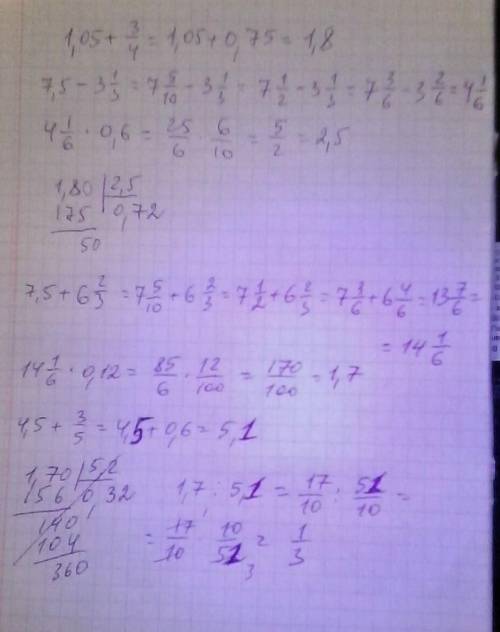 1,05 + 3/4 = 1,05 + 0,75 = 1,8
7,5 - 3 1/3 = 7 5/10 - 3 1/3 = 7 1/2 - 3 1/3 = 7 3/6 - 3 2/6 = 4 1/6
4 1/6 · 0,6 = 25/6 · 6/10 = 5/2 = 2,5
1,80 | 2,5
175 | 0,72
50
7,5 + 6 2/3 = 7 5/10 + 6 2/3 = 7 1/2 + 6 2/3 = 7 3/6 + 6 4/6 = 13 7/6 =
= 14 1/6
14 1/6 · 0,12 = 85/6 · 12/100 = 170/100 = 1,7
4,5 + 3/5 = 4,5 + 0,6 = 5,1
1,70 | 5,2
156 | 0,32
140
104
360
1,7 : 5,1 = 17/10 : 51/10 =
= 17/10 · 10/51 3 = 1/3